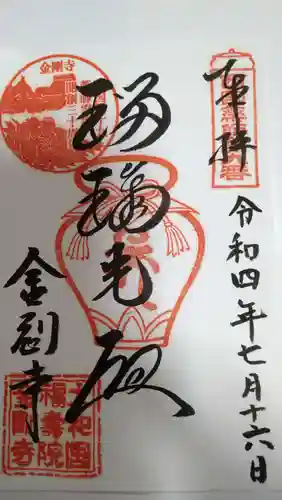 奉拝
令和四年七月十六日
瑠璃光殿
金剛寺
金剛寺
大和国
福寿院
金剛寺